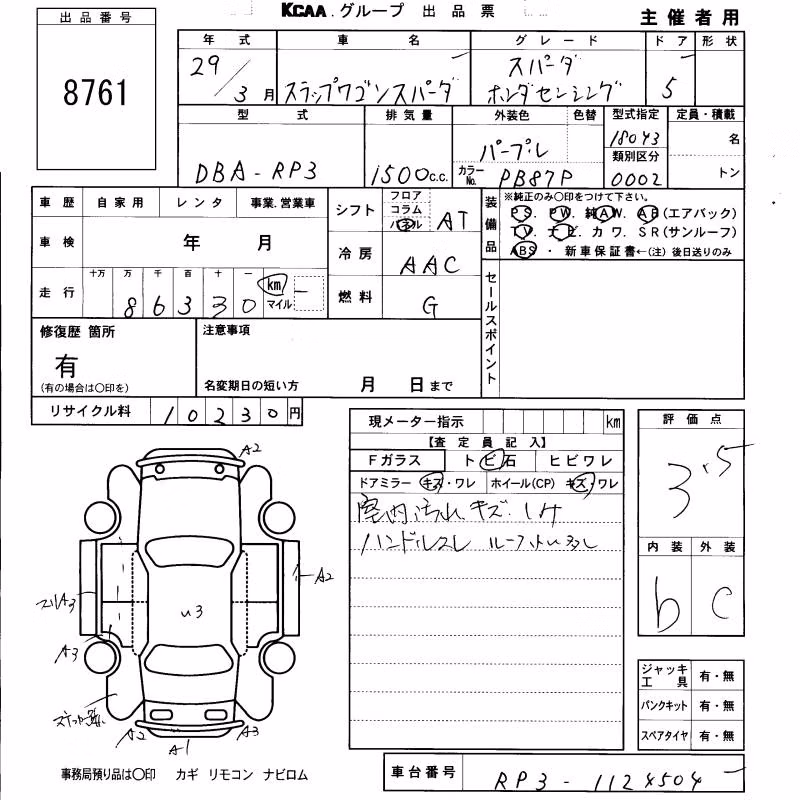 KCAA グループ 出品票
主催者用
出品番号
8761
年式 車名 グレード ドア 形状
29/3月 ステップワゴンスパーダ スパーダ ホンダセンシング 5
型式 排気量 外装色 色替 型式指定 定員・積載
DBA-RP3 1500c.c. パープル 18043 名
カラーNo. PB87P 類別区分 0002 トン
車歴 自家用 レンタ 事業.営業車
シフト フロア コラム パネル AT
装備品 ※純正のみ○印をつけて下さい。
PS. PW. 純AW. AB(エアバック)
TV. ナビ. カワ. SR(サンルーフ)
ABS ・ 新車保証書←(注) 後日送りのみ
車検 年 月
冷房 AAC
走行 十万 万 千 百 十 一 km マイル
86330
燃料 G
セールスポイント
修復歴 箇所
有
(有の場合は○印を)
注意事項
名変期日の短い方 月 日まで
リサイクル料 10230円
現メーター指示 km
【査定員記入】
Fガラス トビ石 ヒビワレ
ドアミラー キズ・ワレ ホイール(CP) キズ・ワレ
室内汚れ、キズ.シケ
ハンドルスレ
評価点
3.5
内装 外装
b C
A2
A2
A3
A3
u3
A2
A1
A3
ジャッキ工具 有・無
パンクキット 有・無
スペアタイヤ 有・無
事務局預り品は○印 カギ リモコン ナビロム
車台番号 RP3-1124504